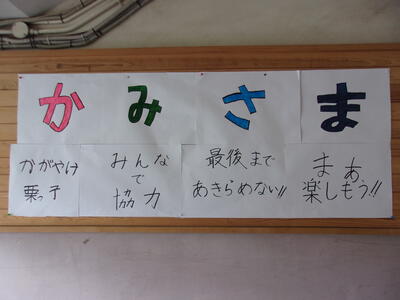 かみさま
かがやけ
栗っ子
みんな
で
協力
最後まで
あきらめない!!
まぁ
楽しもう!!